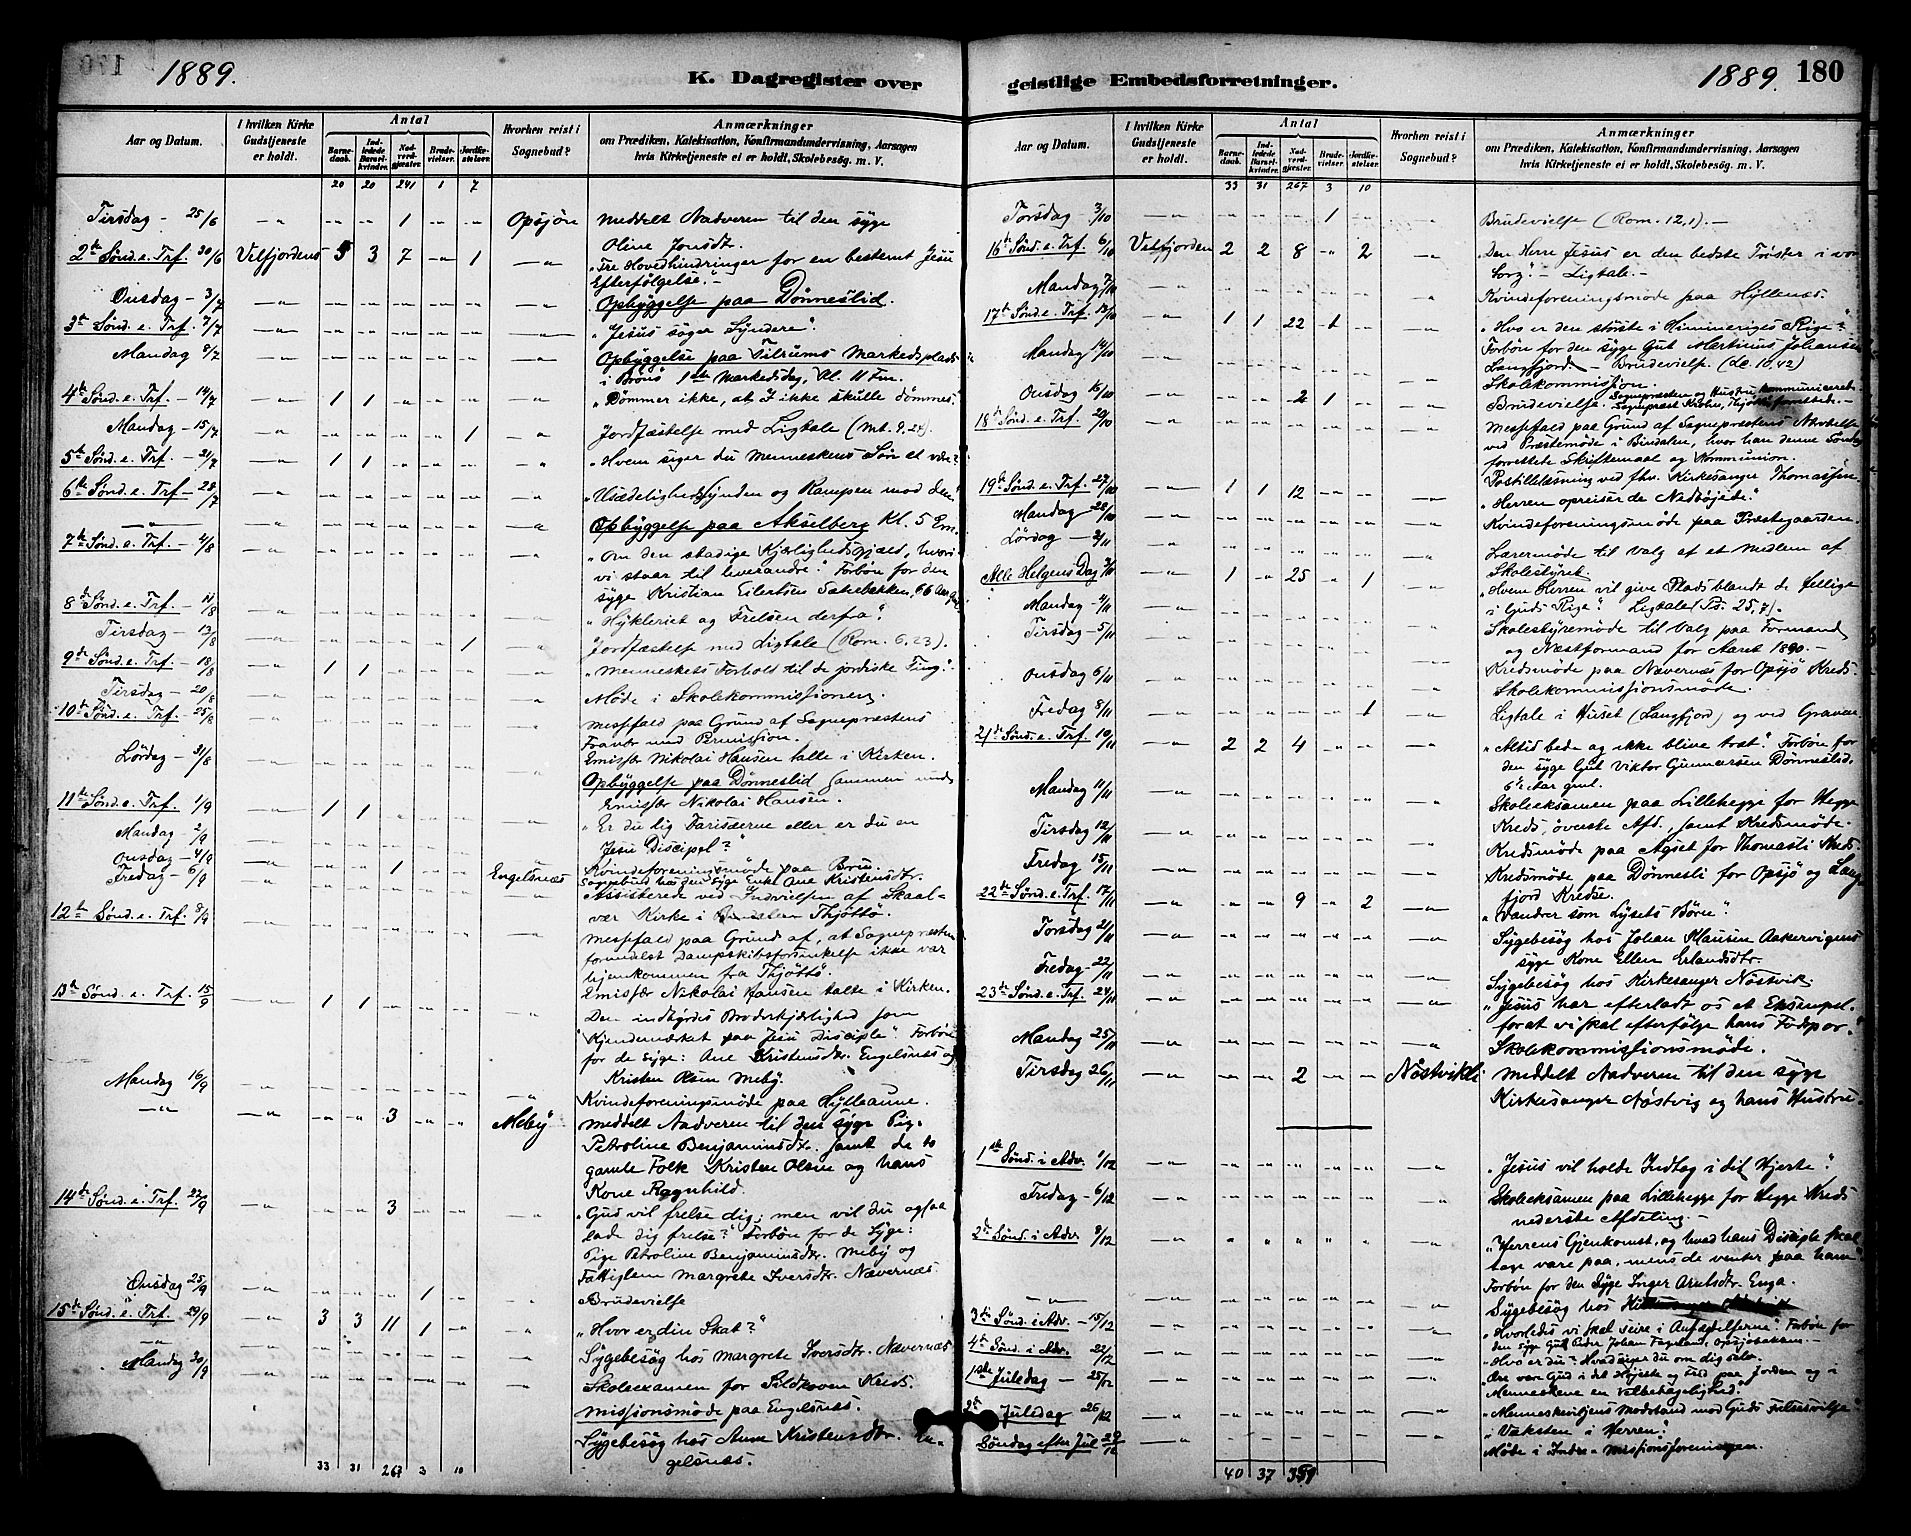 1889.
K. Dagregister over
Aar og Datum.
I hvilken Kirke Gudstjeneste er holdt.
Antal
Barnedaab.
Indledede Barselkvinder.
Nadverdgjæster.
Brudevielser.
Jordfæstelser.
Hvorhen reist i Sognebud?
Anmærkninger
om Prædiken, Katekisation, Konfirmandundervisning, Aarsagen
hvis Kirketjeneste ei er holdt, Skolebesøg. m. V.
20 20 241 1 7
Tirsdag - 25/6 — " " " 1 " " Opsjön Meddelt Nadveren til den syge
Oline Jonsdtr.
2de Sönd. e. Trf. 30/6 Velfjordens 5 3 7 — 1 — " „Tre Hovedhindringer for en bestemt Jesu
Efterfølgelse."
Onsdag - 3/7 — " Opbyggelse paa Dönneslid.
3de Sönd. e. Trf. 7/7 — " „Jesus søger Syndere".
Mandag 8/7 — " Opbyggelse paa Tilrums Markedsplads
i Brönö 1ste Markedsdag, Kl. 11 Fm.
4de Sönd. e. Trf. 14/7 — " 1 1 „Dömmer ikke, at I ikke skulle dömmes."
Mandag - 15/7 — " 1 Jordfæstelse med Ligtale (Mt. 9.24).
5te Sönd. e. Trf. - 21/7 — " 1 1 „Hvem siger du Menneskens Sön at være?"
6te Sönd. e. Trf - 28/7 — " „Usædelighedssynden og Kampen mod den"
— " — Opbyggelse paa Akselberg Kl. 5 Em.
7de Sönd. e. Trf. - 4/8 — " „Om den stadige Kjærlighedsgjæld, hvori
vi staar til hverandre." Forbön for den
syge Kristian Eilertsen Sætebakken, 66 Aar gl.
8de Sönd. e. Trf. - 11/8 — " „Hykleriet og Frelsen derfra".
Tirsdag - 13/8 — " 1 Jordfæstelse med Ligtale (Rom. 6,23).
9de Sönd. e. Trf. - 18/8 — " 1 1 „Menneskets Forhold til de jordiske Ting".
Tirsdag - 20/8 — " Möde i Skolekommissionen.
10de Sönd. e. Trf - 25/8 — " Messfald paa Grund af Sognepræstens
Fravær med Permission.
Emissær Nikolai Hansen talte i Kirken.
Lördag - 31/8 — " Opbyggelse paa Dönneslid sammen med
Emissær Nikolai Hansen.
11te Sönd. e. Trf. - 1/9 — " 1 1 „Er du lig Farisæerne eller er du en
Jesu Discipel?"
Mandag 2/9 — " Kvindeforeningsmöde paa Brus.
Onsdag - 4/9 — " 1 Engelsnæs Sognebud hos den syge Enke Ane Kristensdtr.
Fredag - 6/9 — " Assisterede ved Indvielsen af Skaalvær
Kirke i Thjöttö.
12te Sönd. e. Trf. 8/9 — " Messfald paa Grund af, at Sognepræsten
formedelst Dampskibsforsinkelse ikke var
hjemkommen fra Thjöttö.
Emissær Nikolai Hansen talte i Kirken.
13de Sönd. e. Trf. 15/9 — " 1 1 Den indbyrdes Broderkjærlighed som
Kjendemærket paa Jesu Disciple". Forbön
for de syge: Ane Kristensdtr. Engelsnæs og
Kristen Olsen Meby.
Mandag 16/9 — " Kvindeforeningsmöde paa Hylleaune.
— " — — " 3 Meby Meddelt Nadveren til den syge Pige
Petroline Benjaminsdtr. samt de to
gamle Folk Kristen Olsen og hans
Kone Ragnhild.
14de Sönd. e. Trf. 22/9 — " 3 „Gud vil frelse dig; men vil du ogsaa
lade dig frelse?" Forbön for de Syge:
Pige Petroline Benjaminsdtr. Meby og
Fattiglem Margrete Iversdtr. Nævernæs.
Onsdag 25/9 — " 1 Brudevielse
15de Sönd. e. Trf. 29/9 — " 3 3 11 1 „Hvor er din Skat?"
— " — Sygebesög hos Margrete Iversdtr. Nævernæs
Mandag 30/9 — " Skoleexamen for Sildhoven Kreds.
Missionsmöde paa Engelsnæs.
Sygebesög hos Anne Kristensdtr. Engelsnæs.
33 31 267 3 10
geistlige Embedsforretninger.
1889.
180
Aar og Datum.
I hvilken Kirke Gudstjeneste er holdt.
Antal
Barnedaab.
Indledede Barselkvinder.
Nadverdgjæster.
Brudevielser.
Jordfæstelser.
Hvorhen reist i Sognebud?
Anmærkninger
om Prædiken, Katekisation, Konfirmandundervisning, Aarsagen
hvis Kirketjeneste ei er holdt, Skolebesøg. m. V.
33 31 267 3 10
Torsdag 3/10 — " 1 Brudevielse (Rom. 12,1). —
16de Sönd. e. Trf 6/10 Velfjorden 2 2 8 " 2 „Den Herre Jesus er den bedste Tröster i vor
Sorg". - Ligtale. -
Mandag 7/10 — " Kvindeforeningsmöde paa Hyllenæs.
17de Sönd. e. Trf. 13/10 — " 1 1 22 1 „Hvo er den störste i Himmeriges Rige?"
Forbön for den syge Gut Martinus Johansen
Langfjord - Brudevielse. (Lc. 10,42)
Mandag 14/10 — " Skolekommission.
Onsdag 16/10 — " 2 1 Brudevielse. Sognepræsten og Hustru kommuniceret.
Sognepræst Krohn, Thjöttö forrettede. -
18de Sönd. e. Trf. 20/10 — " Messfald paa Grund af Sognepræstens Nærværelse
ved Præstemöde i Bindalen, hvor han denne Söndag
forrettede Skriftemaal og Kommunion.
Postillelæsning ved fhv. Kirkesanger Thomassen.
19de Sönd. e. Trf. 27/10 — " 1 1 12 „Herren opreiser de Nedböjede."
Mandag 28/10 — " Kvindeforeningsmöde paa Præstegaarden.
Lördag - 2/11 — " Lærermöde til Valg af et Medlem af
Skolestyret.
Alle Helgens Dag 3/11 — " 1 " 25 " 1 „Hvem Herren vil give Plads blandt de hellige
i Guds Rige". Ligtale (Ps. 25,7).
Mandag - 4/11 Skolestyremöde til Valg paa Formand
og Næstformand for Aaret 1890. -
Tirsdag - 5/11 Kredsmöde paa Nævernæs for Opsjö Kreds.
Onsdag 6/11 Skolekommissionsmöde.
Fredag 8/11 1 Ligtale i Huset (Langfjord) og ved Graven
21de Sönd. e. Trf. 10/11 — " 2 2 4 „Altid bede og ikke blive træt". Forbön for
den syge Gut Viktor Gunnarsen Dönneslid,
6 1/2 Aar gml.
Mandag 11/11 — " Skoleeksamen paa Lillehegge for Hegge
Kreds, överste Afd. samt Kredsmöde.
Tirsdag 12/11 — " Kredsmöde paa Agset for Thomasli Kreds
Fredag 15/11 — " Kredsmöde paa Dönnesli for Opsjö og Langfjord
Kredse.
22de Sönd. e. Trf. 17/11 — " 9 " 2 „Vandrer som Lysets Börn".
Torsdag 21/11 — " Sygebesög hos Johan Hansen Aakervigens
syge Kone Ellen Erlandsdtr.
Fredag - 22/11 — " Sygebesög hos Kirkesanger Nöstvik.
23de Sönd. e. Trf. 24/11 — " „Jesus har efterladt os et Eksempel,
for at vi skal efterfölge hans Fodspor."
Mandag 25/11 — " Skolekommissionsmöde.
Tirsdag 26/11 — " 2 Nöstvikli Meddelt Nadveren til den syge
Kirkesanger Nöstvig og hans Hustru.
1ste Sönd. i Adv. 1/12 — " „Jesus vil holde Indtog i dit Hjerte".
Fredag - 6/12 — " Skoleeksamen paa Lillehegge for Hegge Kreds
nederste Afdeling. -
2de Sönd. i Adv 8/12 — " „Herrens Gjenkomst, og hvad hans Disciple skal
tage vare paa, mens de venter paa ham"
Forbön for den syge Inger Arntsdtr. Enga.
— " — Sygebesög hos
3die Sönd. i Adv. - 15/12 — " „Hvorledes vi skal seire i Anfægtelserne" Forbön for
den syge Gut Peder Johan
4de Sönd. i Adv. 22/12 — " „Hvo er du? Hvad siger du om dig selv."
1ste Juledag - 25/12 „Ære vær Gud i det Höjeste og Fred paa Jorden og i
Menneskene en Velbehagelighed".
2den Juledag 26/12 — " „Menneskeviljens Modstand mod Guds Frelsesvilje"
Söndag efter Jul 29/12 — " „Væksten i Herren".
Möde i Indre-Missionsforeningen.
40 37 359